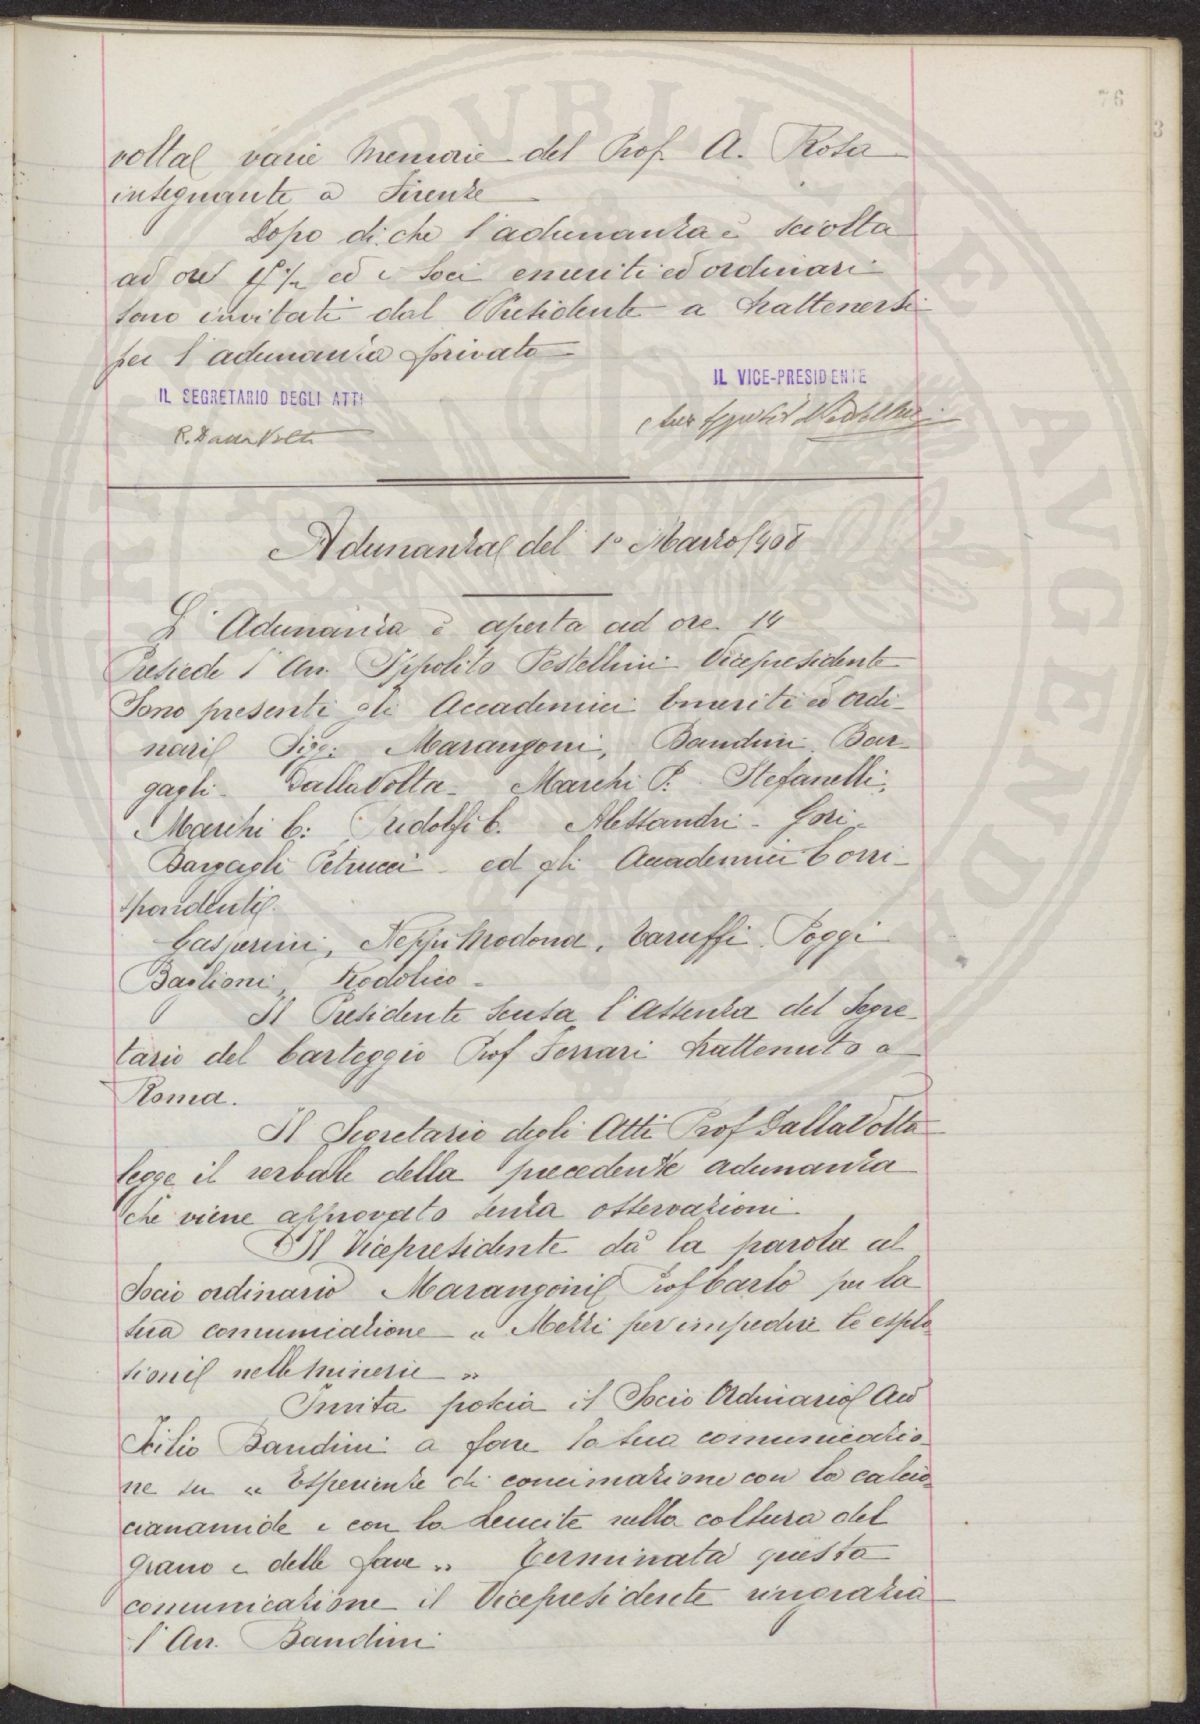 76
volta varie Memorie del Prof. A. Rosa
insegnante a Firenze
Dopo di che l'adunanza è sciolta
ad ore ½ ed i Soci emeriti ed ordinari
sono invitati dal Presidente a trattenersi
per l'adunanza privata
IL SEGRETARIO DEGLI ATTI
IL VICE-PRESIDENTE
R. Dalla Volta
Adunanza del 1° Marzo 1908
L'Adunanza è aperta ad ore 14
Presiede l'Avv. Ippolito Pestellini Vicepresidente
Sono presenti gli Accademici Emeriti ed ordi-
nari Sigg: Marangoni, Bandini, Bar-
gagli - Dalla Volta - Marchi P. Stefanelli,
Marchi E: Ridolfi C. Alessandri - Gori -
Bargagli Petrucci - ed gli Accademici Corri-
spondenti
Gasperini, Neppi Modona, Taruffi, Poggi
Baglioni, Rodolico -
Il Presidente scusa l'assenza del Segre-
tario del Carteggio Prof Ferrari trattenuto a
Roma.
Il Segretario degli Atti Prof Dalla Volta
legge il verbale della precedente adunanza
che viene approvato senza osservazioni.
Il Vicepresidente dà la parola al
Socio ordinario Marangoni Prof Carlo per la
sua comunicazione "Mezzi per impedire le esplo
sioni nelle miniere"
Invita poscia il Socio Ordinario Avv
Icilio Bandini a fare la sua comunicazio-
ne su "Esperienze di concimazione con la calcio-
cianamide e con la Leucite nella coltura del
grano e delle fave" Terminata questa
comunicazione il Vicepresidente ringrazia
l'Avv. Bandini